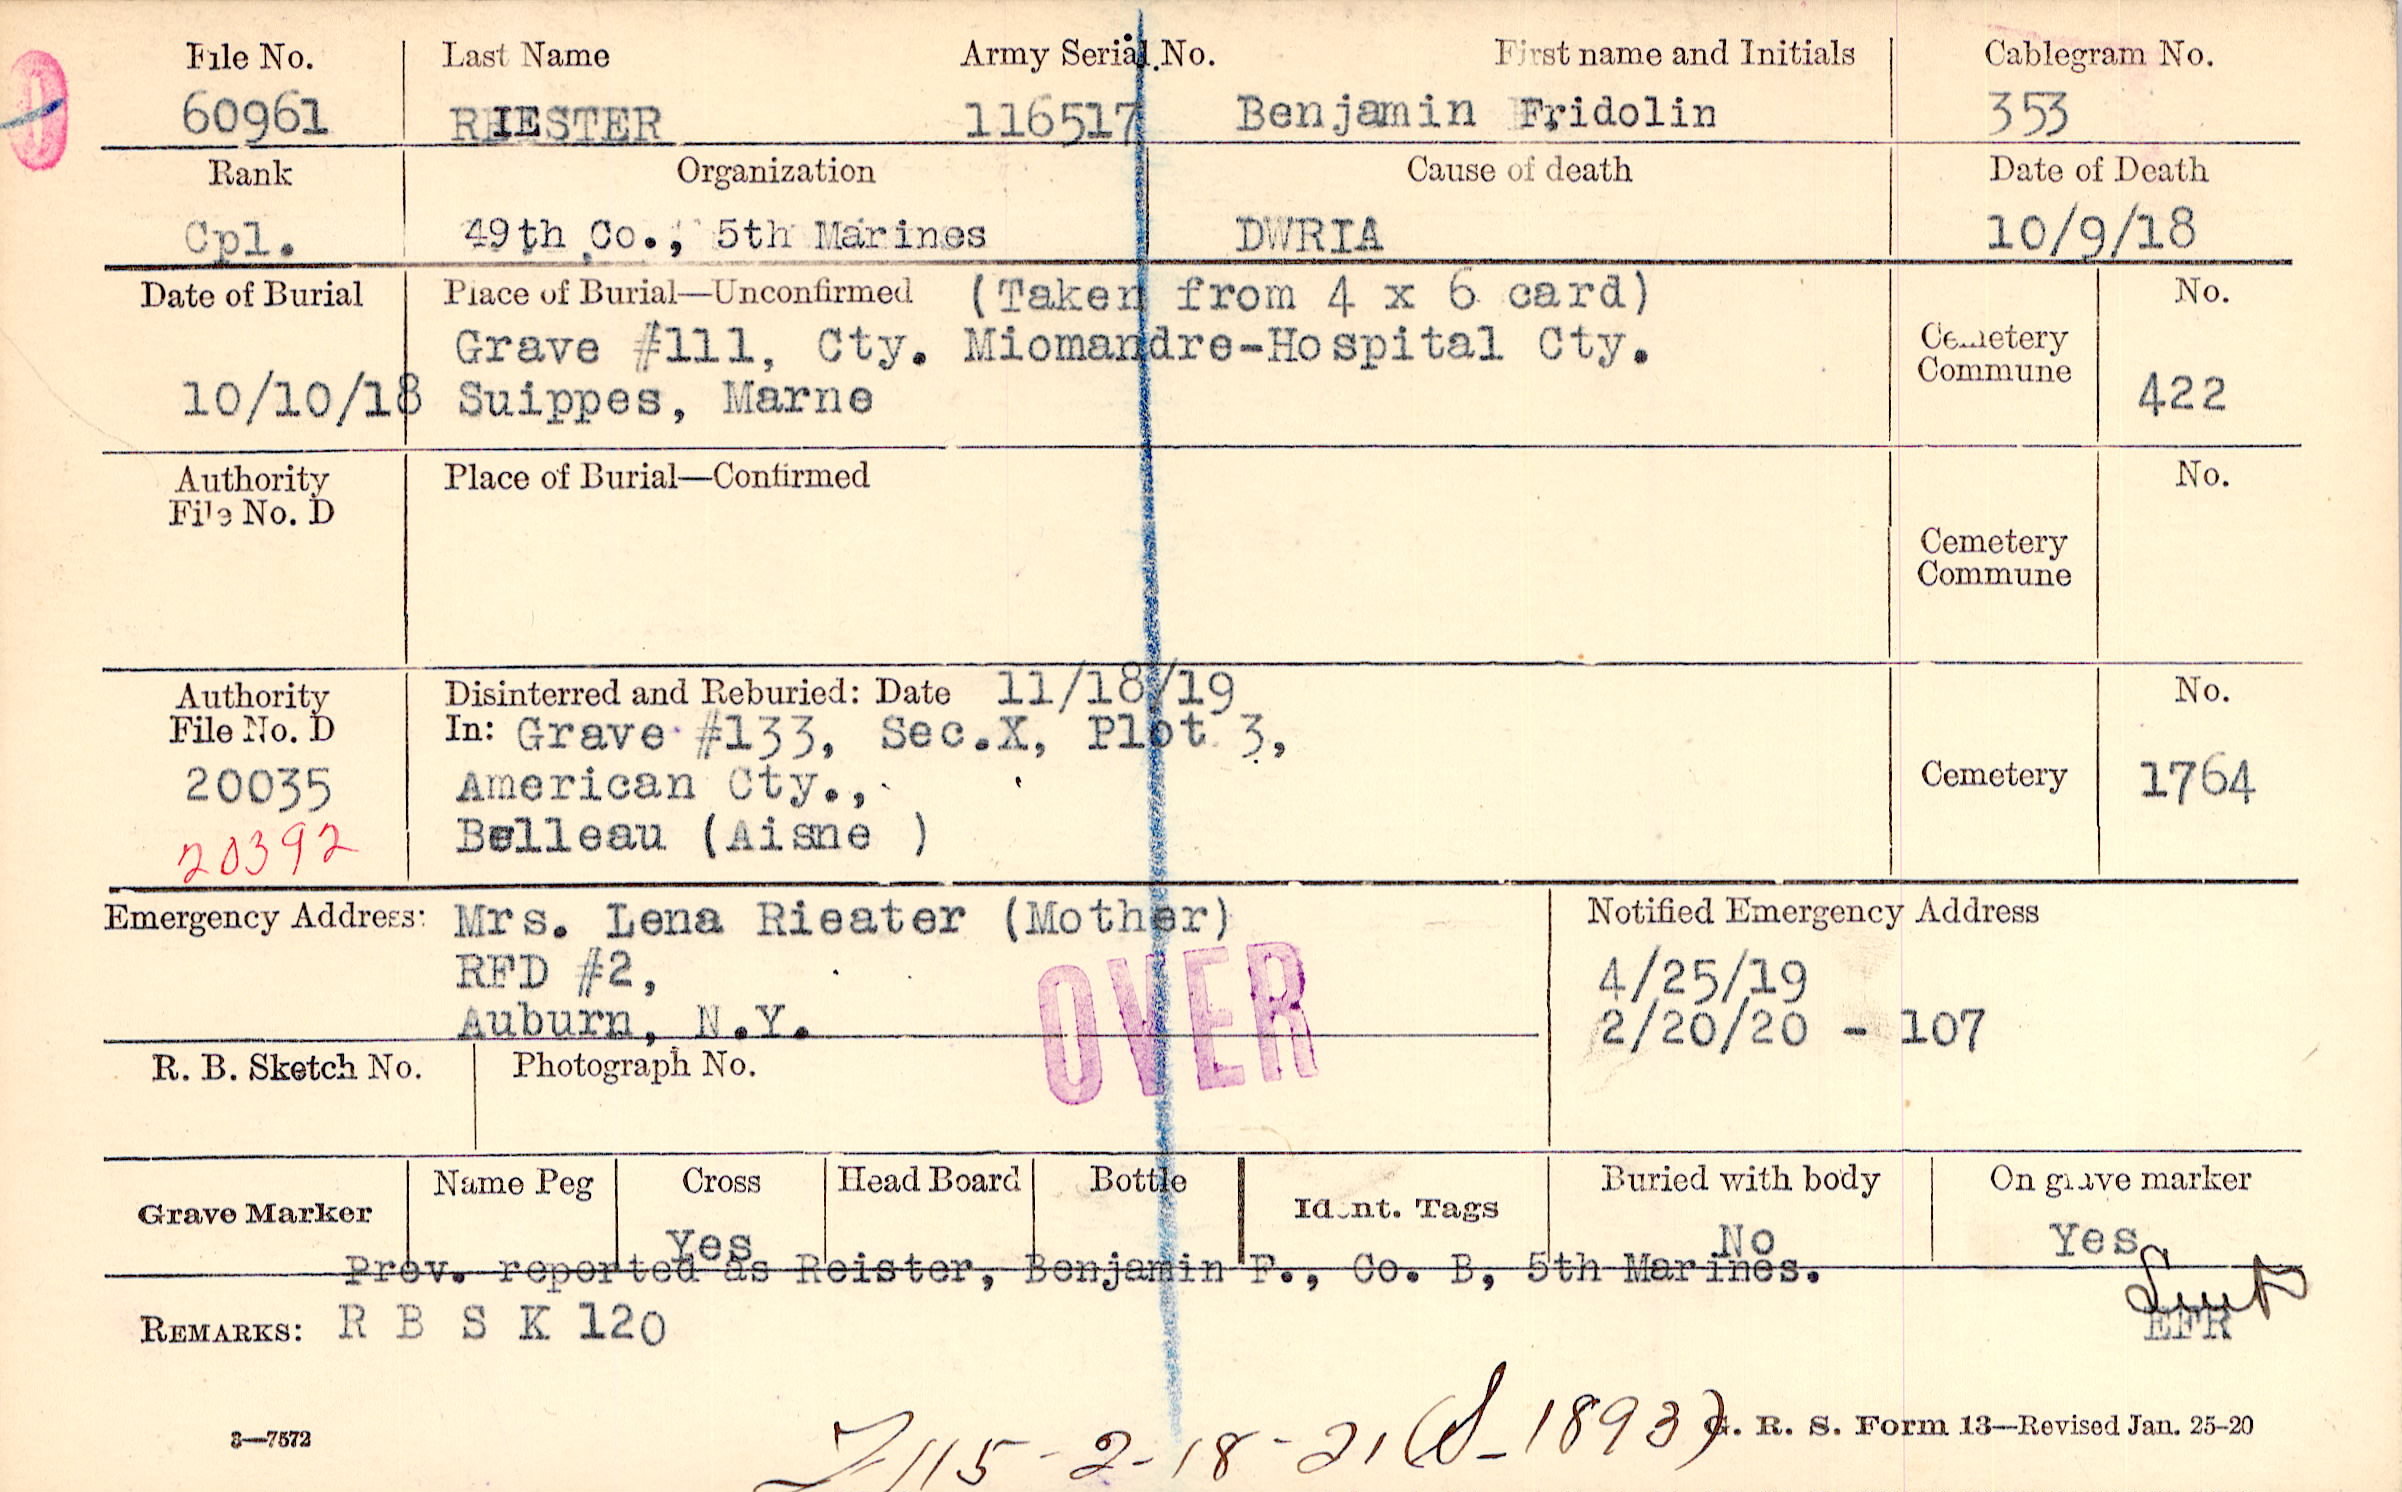 File No. Last Name Army Serial No. First name and Initials Cablegram No.
60961 RIESTER 116517 Benjamin Fridolin 353
Rank Organization Cause of death Date of Death
Cpl. 49th Co., 5th Marines DWRIA 10/9/18
Date of Burial Place of Burial—Unconfirmed (Taken from 4 x 6 card) No.
Grave #111, Cty. Miomandre-Hospital Cty. Cemetery
Commune
10/10/18 Suippes, Marne 422
Authority Place of Burial—Confirmed No.
File No. D
Cemetery
Commune
Authority Disinterred and Reburied: Date 11/18/19 No.
File No. D In: Grave #133, Sec.X, Plot 3,
20035 American Cty., Cemetery 1764
20392 Belleau (Aisne )
Emergency Address: Mrs. Lena Rieater (Mother) Notified Emergency Address
RFD #2, 4/25/19
Auburn, N.Y. 2/20/20 - 107
OVER
R. B. Sketch No. Photograph No.
Grave Marker Name Peg Cross Head Board Bottle Ident. Tags Buried with body On grave marker
Yes No Yes
Prev. reported as Reister, Benjamin F., Co. B, 5th Marines.
REMARKS: R B S K 120 EFR
115-2-18-21 (S-1893)
3—7572 G. R. S. Form 13—Revised Jan. 25-20